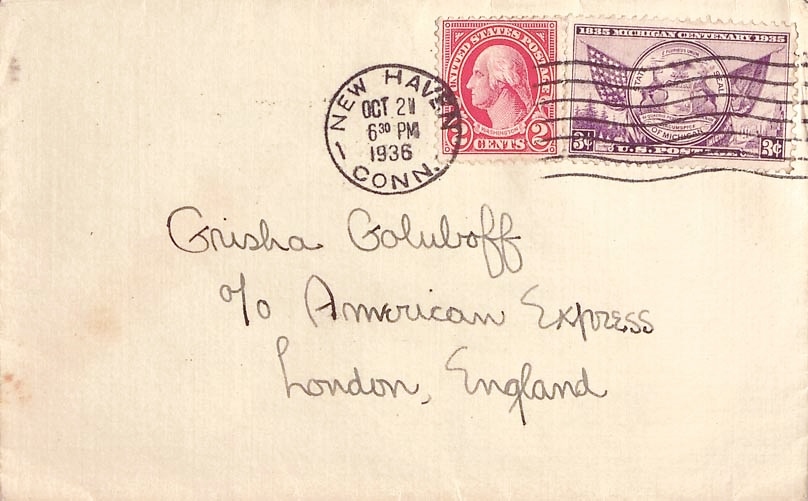 UNITED STATES POSTAGE
WASHINGTON
2 CENTS 2
1835 MICHIGAN CENTENARY 1935
STATE SEAL
OF MICHIGAN
3¢ U.S. POSTAGE 3¢
NEW HAVEN
OCT 21
6 30 PM
1936
CONN.
Grisha Goluboff
c/o American Express
London, England